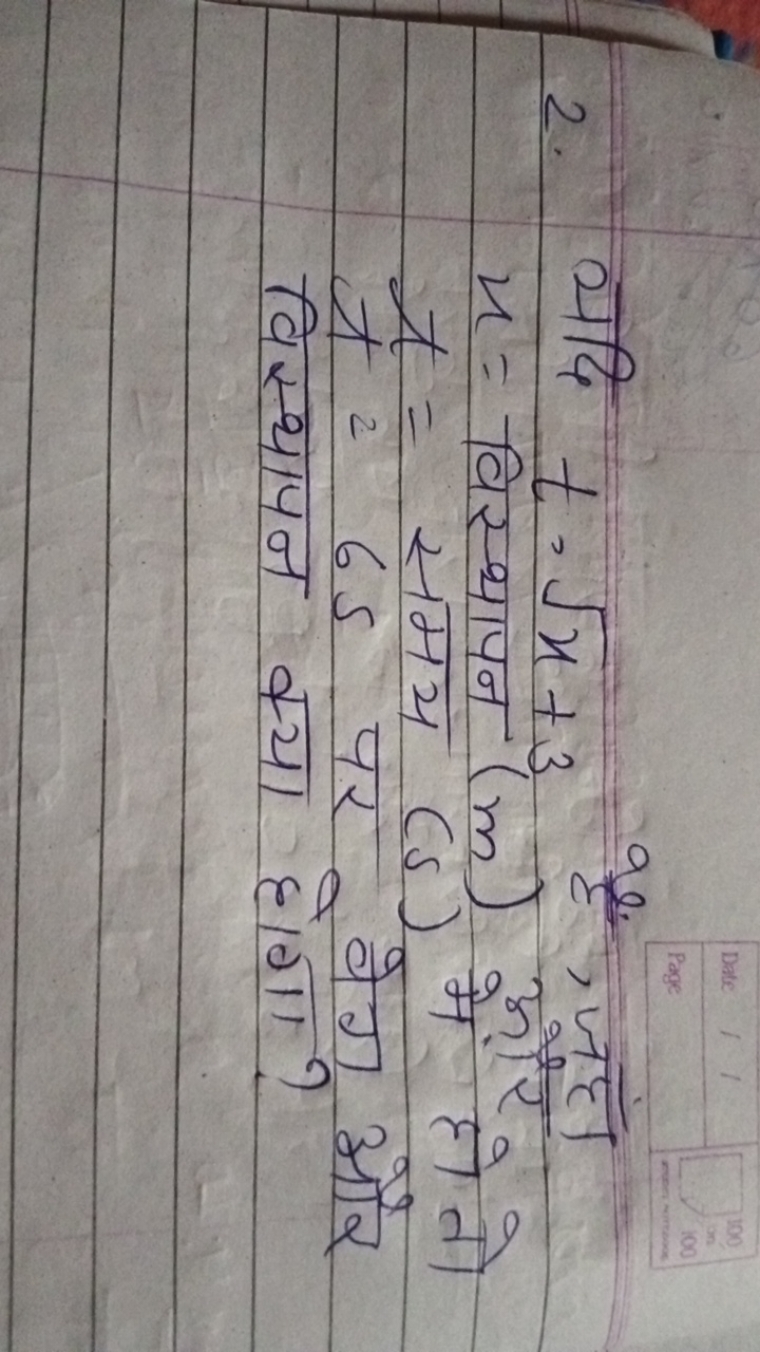 Date / /
Page
2. यदि t = √x + 3 है, जहां
x = विस्थापन (m) और
t = समय (s) में हो तो
t = 6s पर वेग और
विस्थापन क्या होगा?